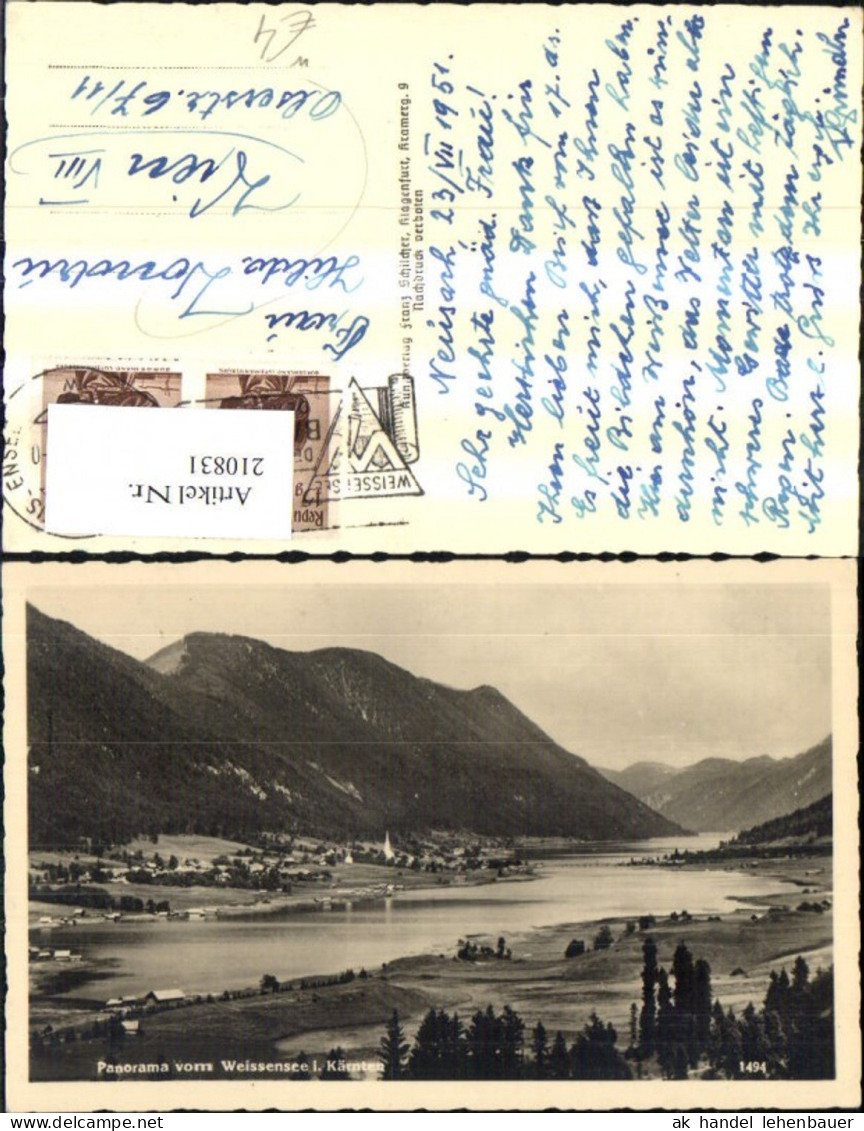 Neusach, 23/VII 1951.
Sehr geehrte gnäd. Frau!
Herzlichen Dank für
Ihren lieben Brief vom 17. ds.
Es freut mich, daß Ihnen
die Bildchen gefallen haben.
Hier am Weißensee ist es wun-
derschön, das Wetter leider aber
nicht. Momentan ist ein
schweres Gewitter mit heftigem
Regen. Bade trotzdem täglich.
Mit herzl. Grüß Ihr erg.
Kunstverlag Franz Schilcher, Klagenfurt, Kramerg. 9
Nachdruck verboten
Frau
Hilda
Wien VIII
Alserstr. 67/11
WEISSENSEE
Repu
Artikel Nr.
210831
Panorama vom Weissensee i. Kärnten
1494
ak handel lehenbauer